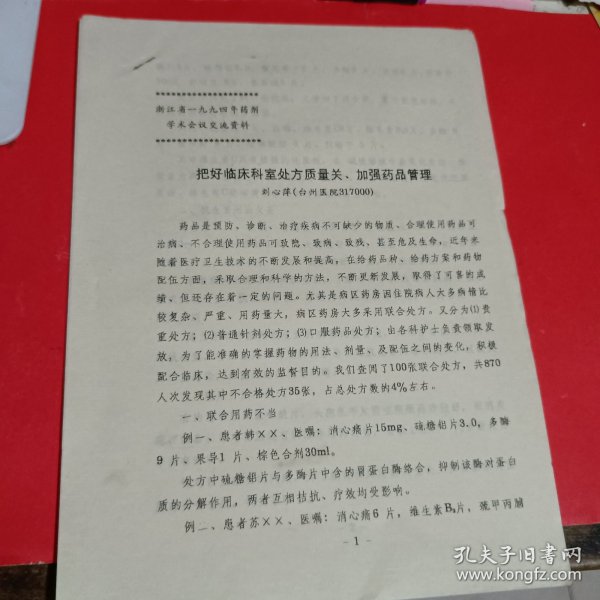 浙江省一九九四年药剂
学术会议交流资料
把好临床科室处方质量关、加强药品管理
刘心萍(台州医院317000)
药品是预防、诊断、治疗疾病不可缺少的物质、合理使用药品可
治病、不合理使用药品可致危、致病、致残，甚至危及生命，近年来
随着医疗卫生技术的不断发展和提高，在给药品种、给药方案和药物
配伍方面，采取合理和科学的方法，不断更新发展，取得了可喜的成
绩、但还存在着一定的问题。尤其是病区药房因住院病人大多病情比
较复杂、严重、用药量大，病区药房大多采用联合处方。又分为(1)贵
重处方；(2)普通针剂处方；(3)口服药品处方；由各科护士负责领取发
放，为了能准确的掌握药物的用法、剂量、及配伍之间的变化，积极
配合临床，达到有效的监督目的。我们查阅了100张联合处方，共870
人次发现其中不合格处方35张，占总处方数的4%左右。
一、联合用药不当
例一、患者韩××、医嘱：消心痛片15mg、硫糖铝片3.0，多酶
9片、果导1片、棕色合剂30ml。
处方中硫糖铝片与多酶片中含的胃蛋白酶络合，抑制该酶对蛋白
质的分解作用，两者互相拮抗、疗效均受影响。
例二、患者苏××、医嘱：消心痛6片，维生素B₆片，巯甲丙脯
- 1 -
孔夫子旧书网
www.kongfz.com